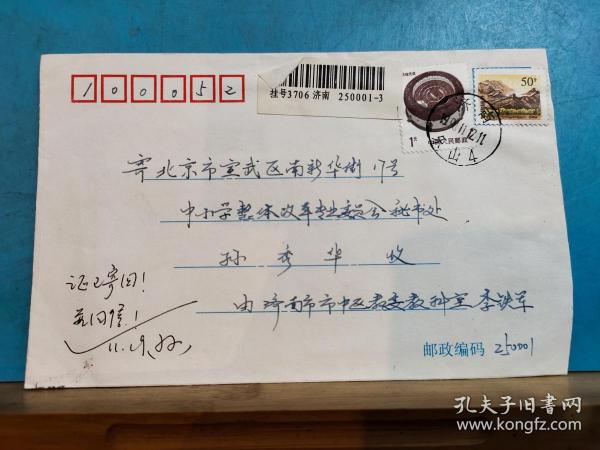 100052
挂号3706 济南 250001-3
50分
1元
中国人民邮政
寄北京市宣武区南新华街17号
中小学整体改革专业委员会秘书处
孙秀华 收
由济南市市中区教委教科室李铁军
邮政编码 250001
证已寄回!
11.19.
孔夫子旧书网
www.kongfz.com